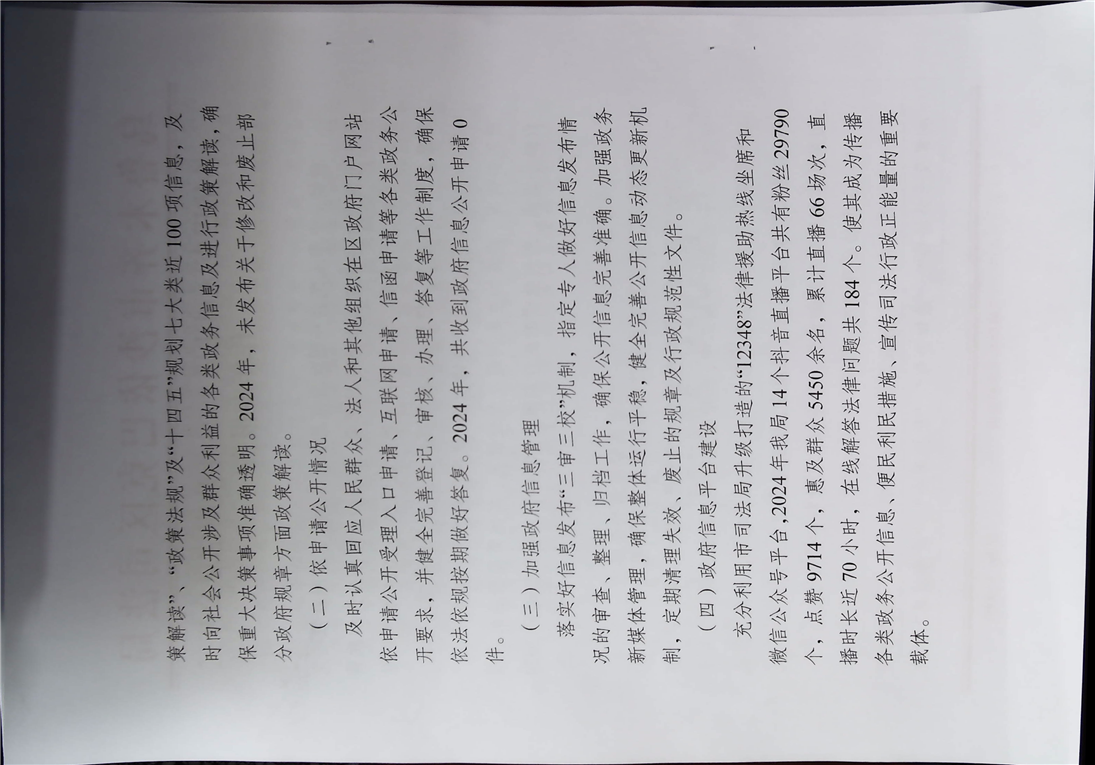 策解读”、“政策法规”及“十四五”规划七大类近 100 项信息，及
时向社会公开涉及群众利益的各类政务信息及进行政策解读，确
保重大决策事项准确透明。2024 年，未发布关于修改和废止部
分政府规章方面政策解读。
（二）依申请公开情况
及时认真回应人民群众、法人和其他组织在区政府门户网站
依申请公开受理入口申请、互联网申请、信函申请等各类政务公
开要求，并健全完善登记、审核、办理、答复等工作制度，确保
依法依规按期做好答复。2024 年，共收到政府信息公开申请 0
件。
（三）加强政府信息管理
落实好信息发布“三审三校”机制，指定专人做好信息发布情
况的审查、整理、归档工作，确保公开信息完善准确。加强政务
新媒体管理，确保整体运行平稳，健全完善公开信息动态更新机
制，定期清理失效、废止的规章及行政规范性文件。
（四）政府信息平台建设
充分利用市司法局升级打造的“12348”法律援助热线坐席和
微信公众号平台，2024 年我局 14 个抖音直播平台共有粉丝 29790
个，点赞 9714 个，惠及群众 5450 余名，累计直播 66 场次，直
播时长近 70 小时，在线解答法律问题共 184 个。使其成为传播
各类政务公开信息、便民利民措施、宣传司法行政正能量的重要
载体。